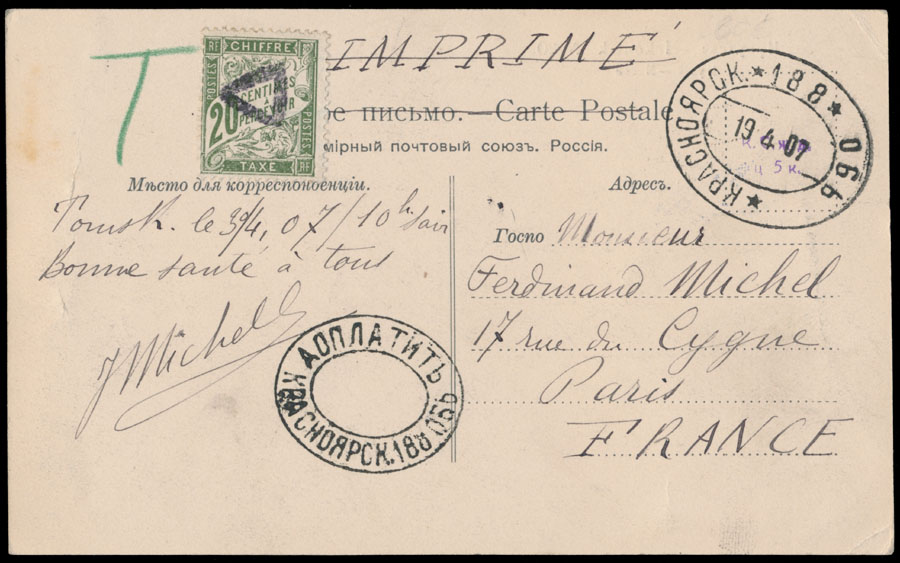 T
RF CHIFFRE
POSTES
CENTIMES
À
PERCEVOIR
20
POSTES
TAXE RF
T
IMPRIMÉ
ое письмо. — Carte Postale.
мірный почтовый союзъ. Россія.
★ КРАСНОЯРСК. ★ 188 ★ ОБЬ
19 4 07
5 к.
Мѣсто для корреспонденціи.
Tomsk. le 30/4, 07/10h Soir
Bonne santé à tous
J Michel
ДОПЛАТИТЬ
КРАСНОЯРСК. 188 ОБЬ
Адресъ.
Госпо Monsieur
Ferdinand Michel
17 rue du Cygne
Paris
FRANCE